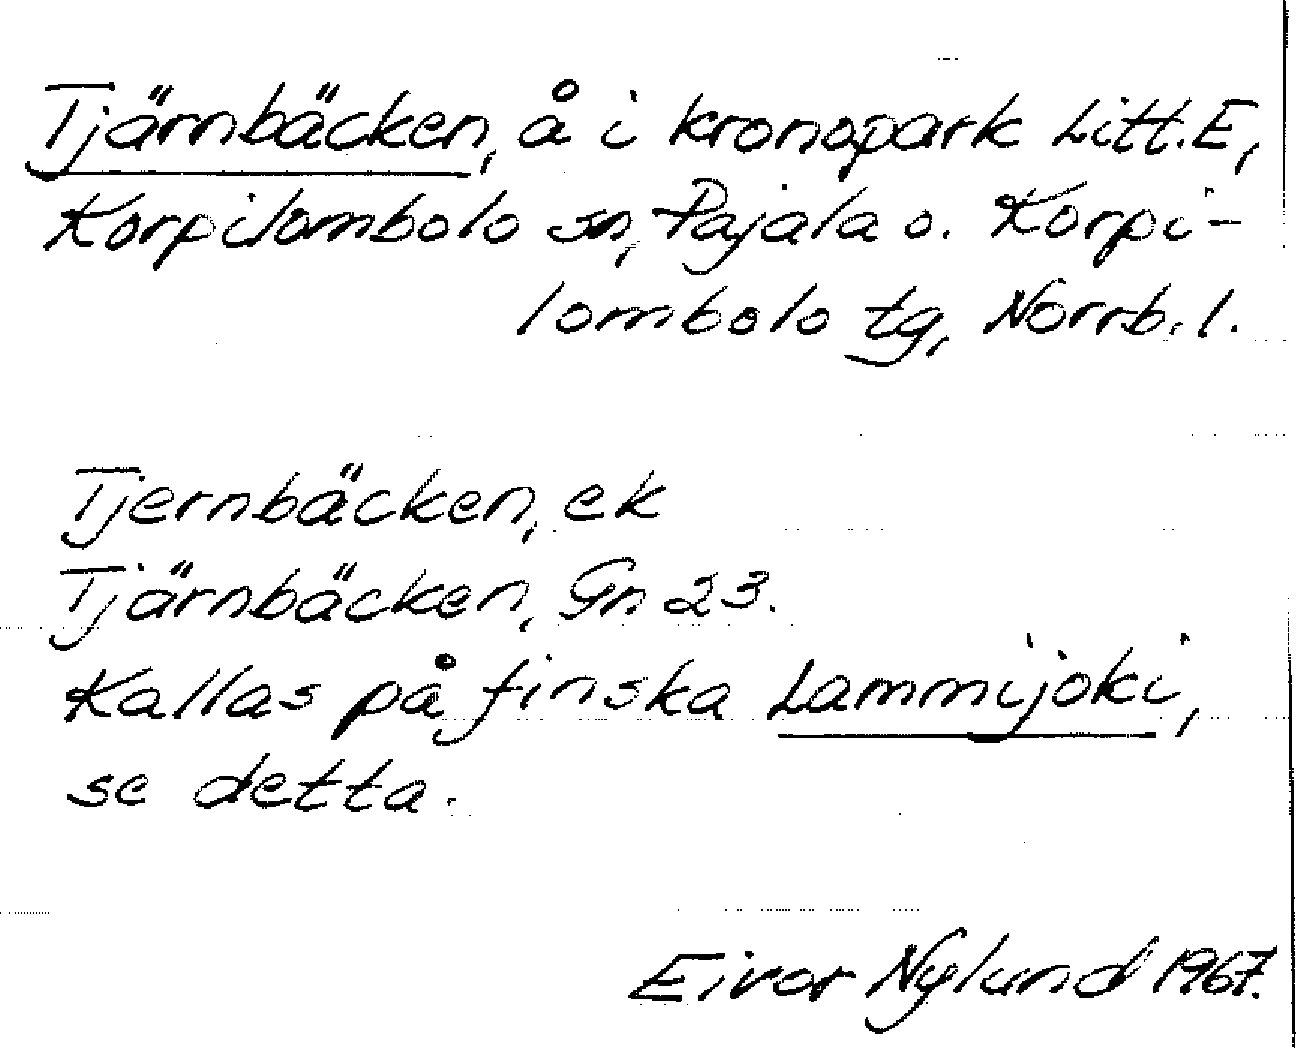 Tjärnbäcken, å i kronopark Litt. E,
Korpilombolo sn, Pajala o. Korpi-
lombolo tg, Norrb. l.
Tjernbäcken, ek
Tjärnbäcken, Gn 23.
Kallas på finska Lammijoki,
se detta.
Eivor Nylund 1967.